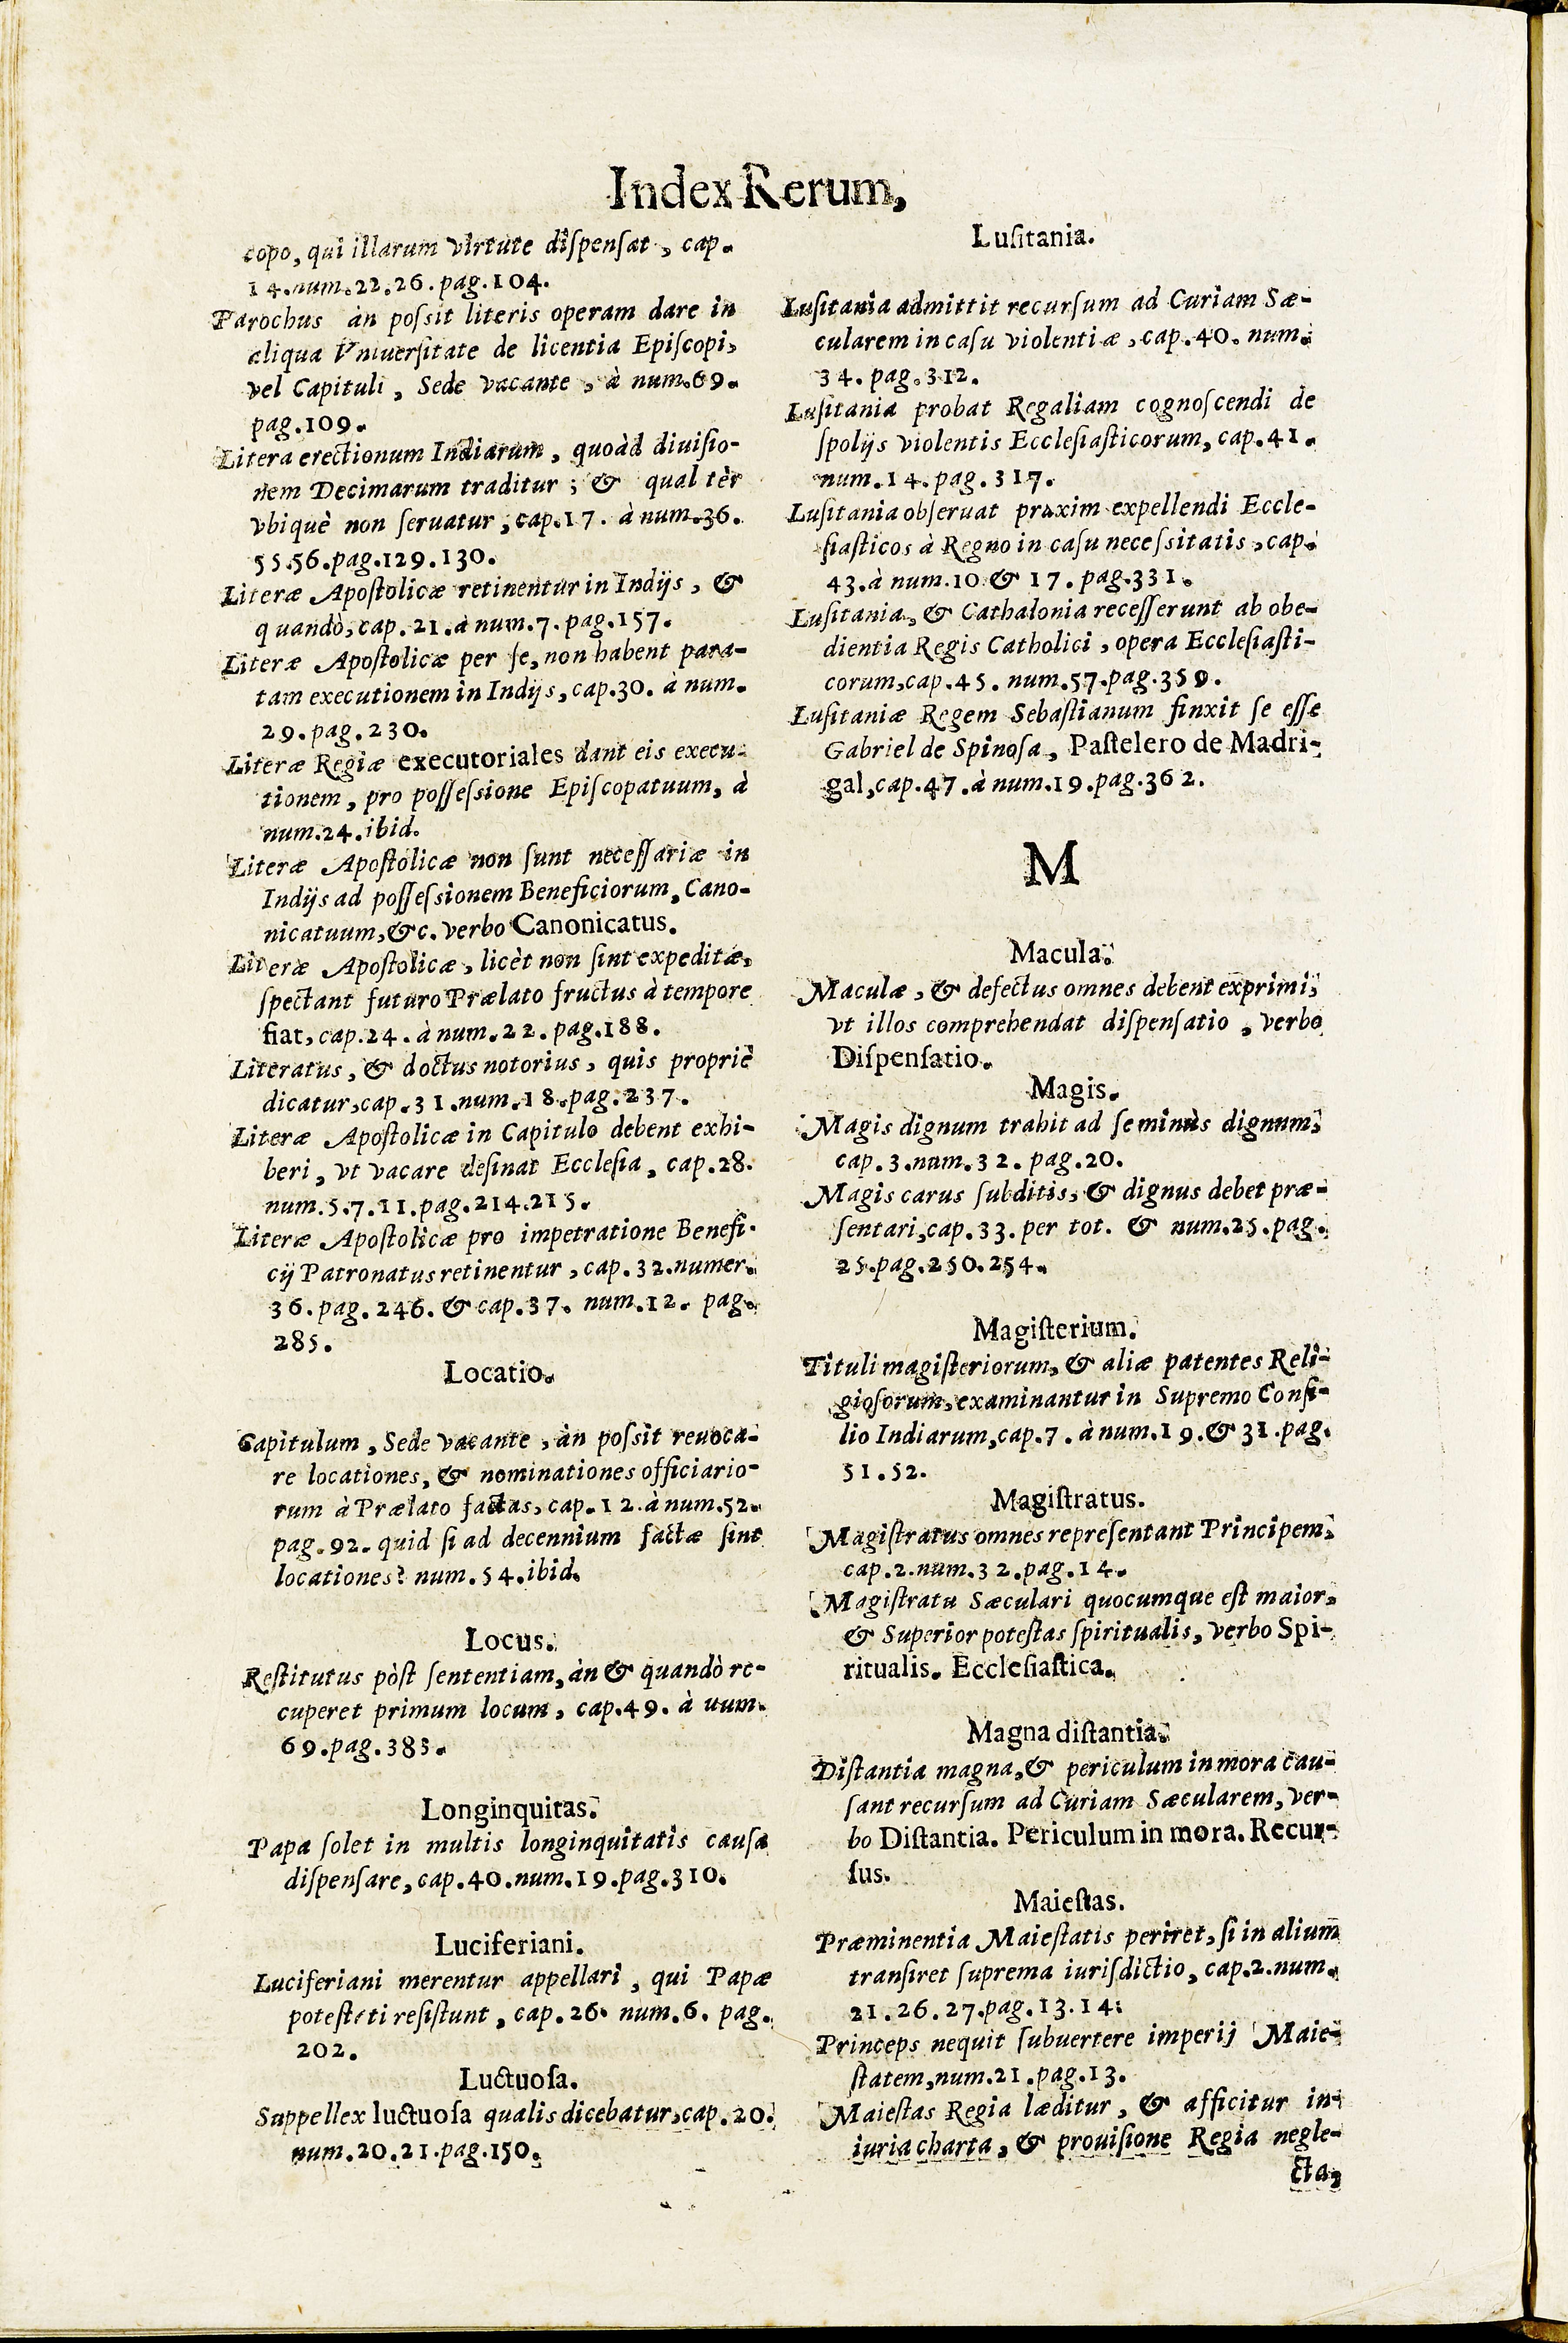 Index Rerum,
copo, qui illarum virtute diſpenſat, cap.
14.num.22.26.pag.104.
Parochus àn poſsit literis operam dare in
aliqua Vniuerſitate de licentia Epiſcopi,
vel Capituli, Sede vacante, à num.69.
pag.109.
Litera erectionum Indiarum, quoàd diuiſio-
nem Decimarum traditur; & qual tèr
vbiquè non ſeruatur, cap.17. à num.36.
55.56.pag.129.130.
Literæ Apoſtolicæ retinentur in Indijs, &
quandò, cap. 21.à num.7.pag.157.
Literæ Apoſtolicæ per ſe, non habent para-
tam executionem in Indijs, cap.30. à num.
29.pag.230.
Literæ Regiæ executoriales dant eis execu-
tionem, pro poſſeſsione Epiſcopatuum, à
num.24.ibid.
Literæ Apoſtolicæ non ſunt neceſſariæ in
Indijs ad poſſeſsionem Beneficiorum, Cano-
nicatuum, &c. verbo Canonicatus.
Literæ Apoſtolicæ, licèt non ſint expeditæ,
ſpectant futuro Prælato fructus à tempore
fiat, cap.24. à num.22.pag.188.
Literatus, & doctus notorius, quis propriè
dicatur, cap.31.num.18.pag.237.
Literæ Apoſtolicæ in Capitulo debent exhi-
beri, vt vacare deſinat Eccleſia, cap.28.
num.5.7.11.pag.214.215.
Literæ Apoſtolicæ pro impetratione Benefi-
cij Patronatus retinentur, cap.32.numer.
36.pag.246. & cap.37. num.12. pag.
285.
Locatio.
Capitulum, Sede vacante, àn poſsit reuoca-
re locationes, & nominationes officiario-
rum à Prælato factas, cap.12.à num.52.
pag.92. quid ſi ad decennium factæ ſint
locationes? num.54.ibid.
Locus.
Reſtitutus pòſt ſententiam, àn & quandò re-
cuperet primum locum, cap.49. à uum.
69.pag.383.
Longinquitas.
Papa ſolet in multis longinquitatis cauſa
diſpenſare, cap.40.num.19.pag.310.
Luciferiani.
Luciferiani merentur appellari, qui Papæ
poteſtati reſiſtunt, cap.26. num.6. pag.
202.
Luctuoſa.
Suppellex luctuoſa qualis dicebatur, cap.20.
num.20.21.pag.150.
Luſitania.
Luſitania admittit recurſum ad Curiam Sæ-
cularem in caſu violentiæ, cap.40. num.
34. pag.312.
Luſitania probat Regaliam cognoſcendi de
ſpolijs violentis Eccleſiaſticorum, cap.41.
num.14.pag.317.
Luſitania obſeruat praxim expellendi Eccle-
ſiaſticos à Regno in caſu neceſsitatis, cap.
43.à num.10.& 17. pag.331.
Luſitania, & Cathalonia receſſerunt ab obe-
dientia Regis Catholici, opera Eccleſiaſti-
corum, cap.45. num.57.pag.359.
Luſitaniæ Regem Sebaſtianum finxit ſe eſſe
Gabriel de Spinoſa, Paſtelero de Madri-
gal, cap.47.à num.19.pag.362.
M
Macula.
Maculæ, & defectus omnes debent exprimi,
vt illos comprehendat diſpenſatio, verbo
Diſpenſatio.
Magis.
Magis dignum trahit ad ſe minùs dignum,
cap.3.num.32.pag.20.
Magis carus ſubditis, & dignus debet præ-
ſentari, cap.33. per tot. & num.25.pag.
25.pag.250.254.
Magiſterium.
Tituli magiſteriorum, & aliæ patentes Reli-
gioſorum, examinantur in Supremo Conſi-
lio Indiarum, cap.7.à num.19.& 31.pag.
51.52.
Magiſtratus.
Magiſtratus omnes repreſentant Principem,
cap.2.num.32.pag.14.
Magiſtratu Sæculari quocumque eſt maior,
& Superior poteſtas ſpiritualis, verbo Spi-
ritualis. Eccleſiaſtica.
Magna diſtantia.
Diſtantia magna, & periculum in mora cau-
ſant recurſum ad Curiam Sæcularem, ver-
bo Diſtantia. Periculum in mora. Recur-
ſus.
Maieſtas.
Præminentia Maieſtatis periret, ſi in alium
tranſiret ſuprema iuriſdictio, cap.2.num.
21.26.27.pag.13.14.
Princeps nequit ſubuertere imperij Maie-
ſtatem, num.21.pag.13.
Maieſtas Regia læditur, & afficitur in-
iuria charta, & prouiſione Regia negle-
cta,